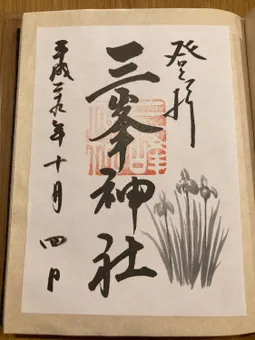 登拝
三峯神社
平成二九年十月四日